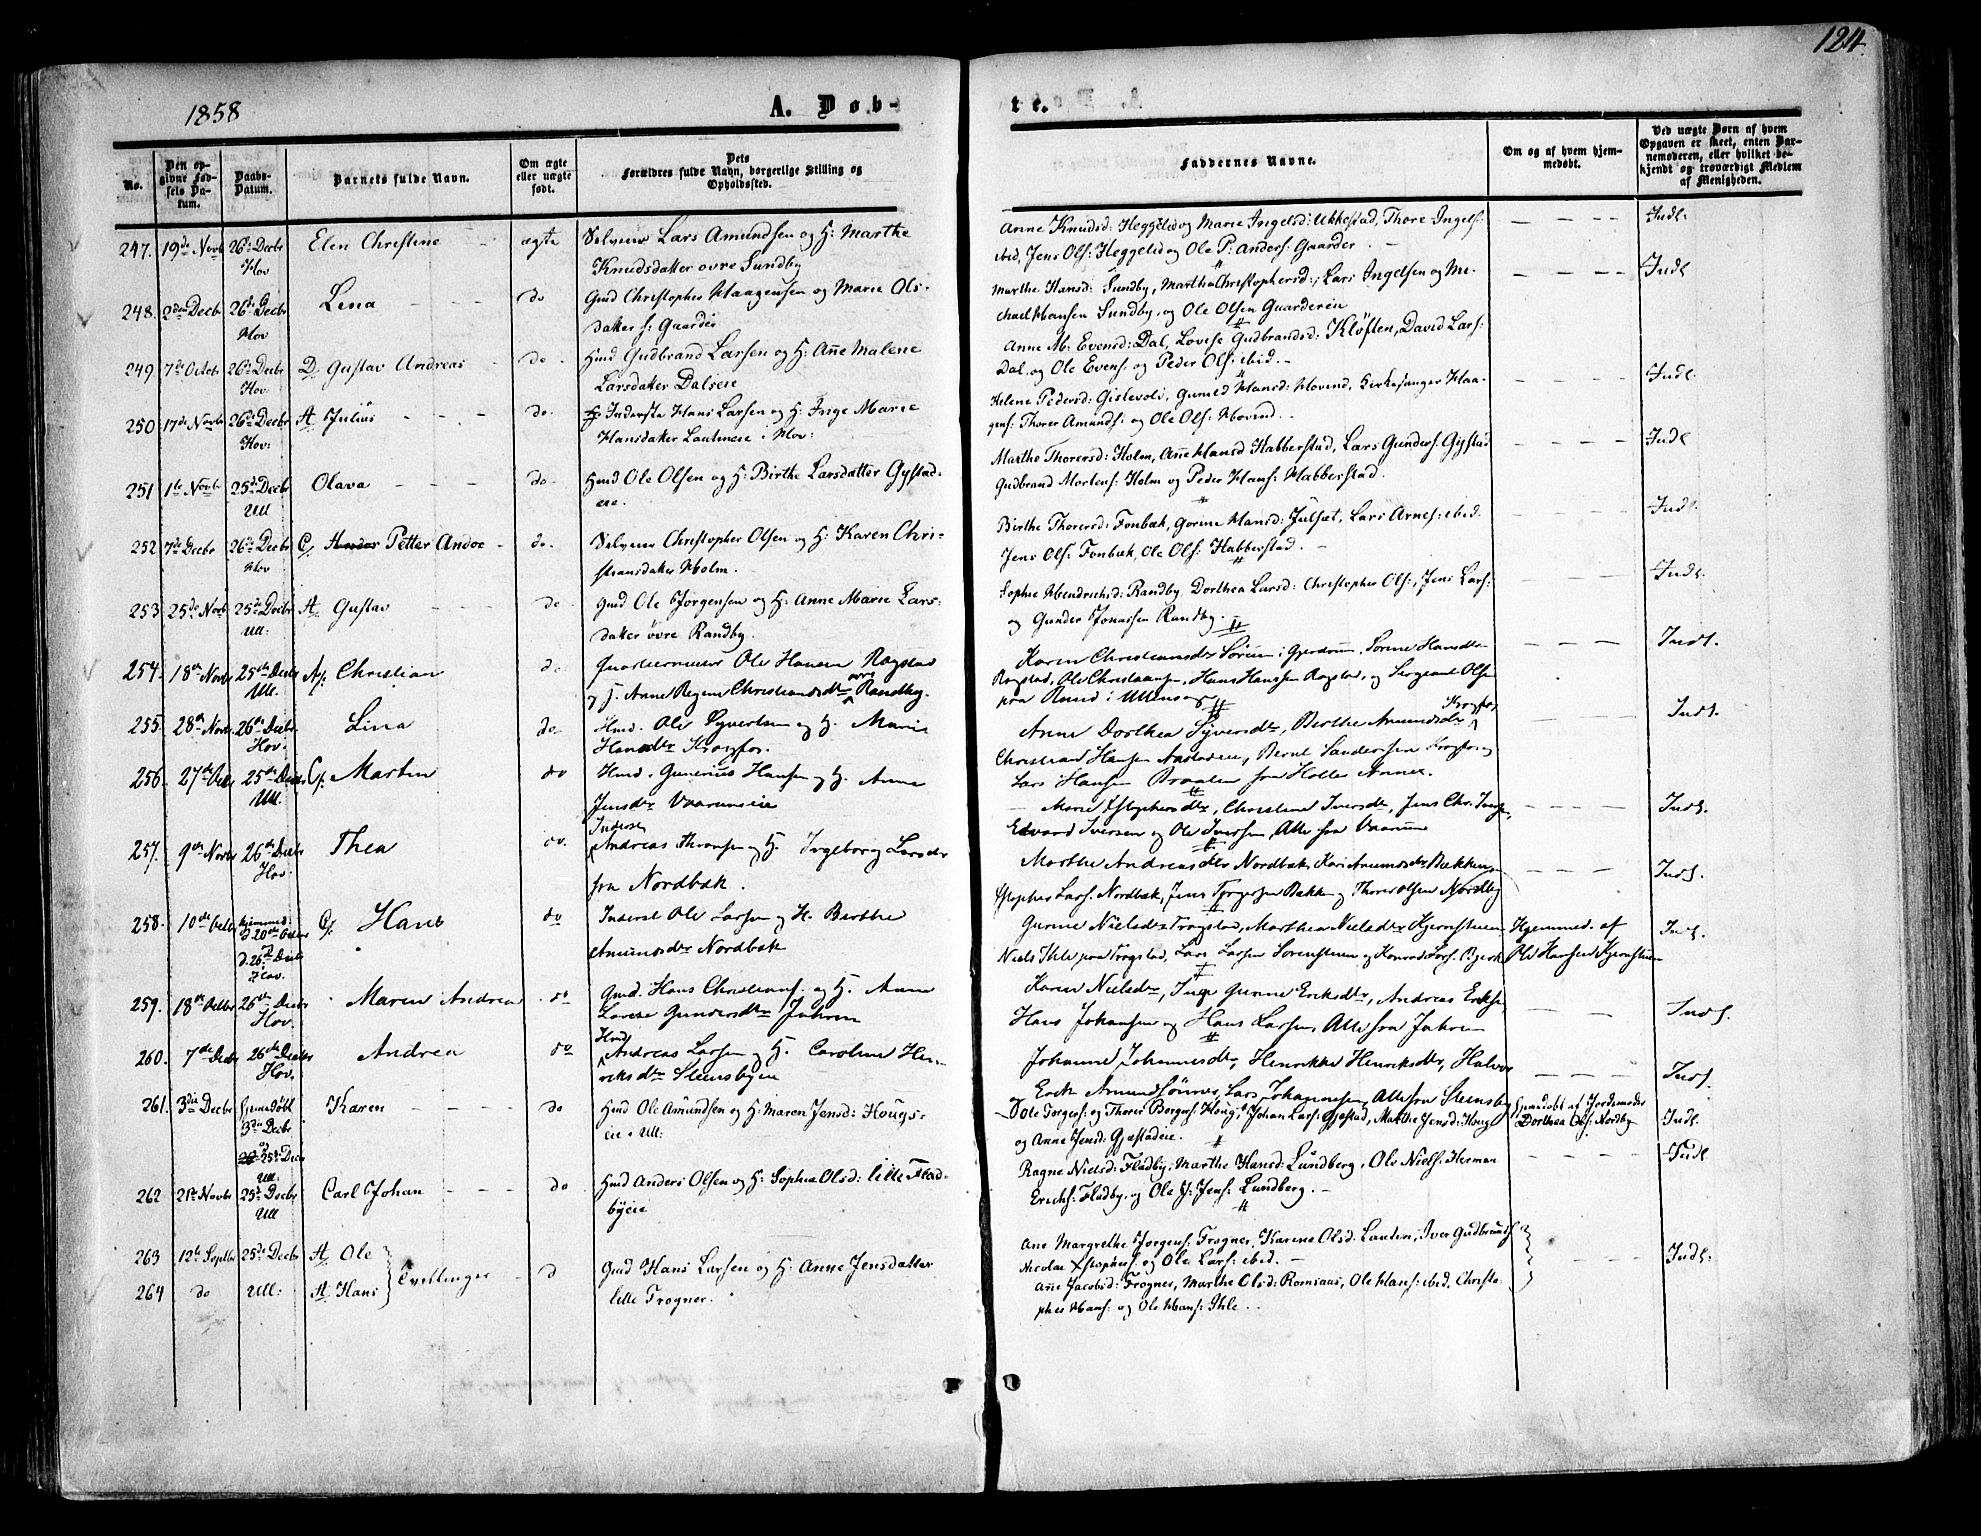 124.
1858
A. Døb-
te.
No.
Den op-
givne Fød-
sels Da-
tum.
Daabs-
Datum.
Barnets fulde Navn.
Om ægte
eller uægte
født.
Dets
Forældres fulde Navn, borgerlige Stilling og
Opholdssted.
Faddernes Navne.
Om og af hvem hjem-
medøbt.
Ved uægte Børn af hvem
Opgaven er skeet, enten Bar-
nemoderen, eller hvilket be-
kjendt og troværdigt Medlem
af Menigheden.
247. 19de Novb 26de Decbr Hov Elen Christine ægte
Selveier Lars Amundsen og H: Marthe
Knudsdatter øvre Sundby
Anne Knudsd: Heggelid og Marie Ingelsd: Ukkestad, Thore Ingels:
ibid, Jens Ols: Heggelid og Ole P: Anders: Gaarder
Indl:
248. 2den Decbr 26de Decbr Hov Lina do
Gmd Christopher Haagensen og Marie Ols-
datter s: Gaarder
Marthe Hansd: Sundby, Marthe Christophersd:, Lars Ingelsen og Mi-
chael Hansen Sundby, og Ole Olsen Gaardereie
Indl
249 7de Octobr 26de Decbr Hov. D. Gustav Andreas do
Hmd Gudbrand Larsen og H: Anne Malene
Larsdatter Dalseie
Anne M: Evensd: Dal, Lovise Gudbrandsd: Kløften, David Lars:
Dal, og Ole Evens: og Peder Ols: ibid.
Indl.
250 17de Novb 26de Decbr Hov: A Julius do.
Inderste Hans Larsen og H: Inge Marie
Hansdatter Lauteneie i Hov:
Helene Pedersd: Gislevold, Gunild Hansd: Hovind, Kirkesanger Haa-
gens: Thorer Amunds: og Ole Ols: Hovind.
Indl
251 1te Novb 25de Decbr Ull Olava do.
Hmd Ole Olsen og H: Birthe Larsdatter Gystad-
eie.
Marthe Thorersd: Holm, Anne Hansd Habberstad, Lars Gunders: Gystad
Gudbrand Mortens: Holm og Peder Hans: Habberstad.
Indl.
252 7de Decbr 26de Decbr Hov C. Petter Andoe do.
Selveier Christopher Olsen og H: Karen Chri-
stiansdatter Holm.
Birthe Thorersd: Fonbæk, Gorine Hansd: Julsæt, Lars Arnes: ibid.
Jens Ols: Fonbæk, Ole Ols: Habberstad.
Indl.
253 25de Novb 25de Decbr Ull: A. Gustav do
Gmd Ole Jørgensen og H: Anne Marie Lars:
datter øvre Randby.
Sophie Hendrichsd: Randby Dorthea Larsd: Christopher Ols:, Jens Lars:
og Gunder Jonassen Randby.
254. 18de Novbr 25de Decbr Ull. A. Christian do
Quarteermester Ole Hansen Ragstad
og H. Anne Regine Christiansdtr øvre Randby.
Karen Christiansdtr Sørum i Gjerdrum, Sorine Hansdtr
Ragstad, Ole Christiansen, Hans Hansen Ragstad, og Sergeant Olsen
fra Rund i Ullensager
Indl.
255. 28de Novbr 26de Decbr Hov. Lina do.
Hmd. Ole Syvertsen og H. Marie
Hansdtr Krogfos.
Anne Dorthea Syversdtr, Berthe Amundsdtr Krogfos,
Christian Hansen Aastadeie, Bernt Sandersen Krogfos og
Lars Hansen Braaten fra Holter Annex.
Indl.
256. 27de Octb 25de Decbr Ull. C. Martin do
Hmd. Gunerius Hansen og H. Anne
Jensdtr Vaarumseie
Marie Christophersdtr, Christine Iversdtr, Jens Chr. Iversen,
Edvard Iversen og Ole Iversen, Alle fra Vaarum
Indl.
257. 9de Novbr 26de Decbr Hov. Thea do.
Inderst Andreas Thronsen og H. Ingeborg Larsdtr
fra Nordbæk.
Marthe Andreasdtr Nordbæk, Kari Amundsdtr Bækken,
Christopher Lars: Nordbæk, Jens Torgersen Bække og Thorer Olsen Nordby
Indl.
258. 10de Octbr Hjemmed. d. 20de Octbr d. 26de Decbr Hov. C. Hans do
Inderst Ole Larsen og H. Berthe
Amundsdtr Nordbæk
Gurine Nielsdtr Trogstad, Marthea Nielsdtr Hjernsteen
Niels Ihle paa Trogstad, Lars Larsen Sorensteen og Konrad Lars. Bjerke
Hjemmed. af
Ole Hansen Hjernsteen
Indl.
259. 18de Octbr 26de Decbr Hov. Maren Andrea do
Gmd. Hans Christians. og H. Anne
Lovise Gundersdtr Jahren
Karen Nielsdtr, Inge Gurine Eriksdtr, Andreas Eriksen,
Hans Johansen og Hans Larsen, Alle fra Jahren
Indl.
260. 7de Decbr 26de Decbr Hov. Andrea do
Hmd Andreas Larsen og H. Caroline Hen-
riksdtr Steensbyeie
Johanne Johannesdtr, Henrikke Henriksdtr, Halvor
Erik Amundsønner, Lars Johannesen, Alle fra Steensby
Indl.
261. 3die Decbr Hjemedøbt 3die Decbr 25de Decb Ull: Karen do
Hmd Ole Amundsen og H: Maren Jensd: Hougs-
eie i Ull:
Ole Torgers: og Thorer Borgers: Houg, Johan Lars: Gjestad, Marthe Jensd: Houg
og Anne Jensd: Gjæstadeie.
Hjemdøbt af Jordemoder
Dorthea Ols: Nordby
Indl.
262 21de Novbr 25de Decbr Ull Carl Johan do
Hmd Anders Olsen og H: Sophie Olsd: lille Flad-
byeie
Ragne Nielsd: Fladby, Marthe Hansd: Lundberg, Ole Niels: Herman
Erichs: Fladby, og Ole J: Jens: Lundberg.
Indl
263 12te Septbr 25de Decbr A. Ole
264 do Ull: A. Hans Tvillinger d
Gmd Hans Larsen og H: Anne Jensdatter
lille Frogner.
Ane Margrethe Jørgens: Frogner, Karine Olsd: Lauten, Iver Gudbrands
Nicolai Xstophers. og Ole Lars: ibid.
Anne Jacobsd: Frogner, Marthe Olsd: Romsaas, Ole Hans: ibid, Christo-
pher Hans: og Ole Hans: Ihle.
Indl.